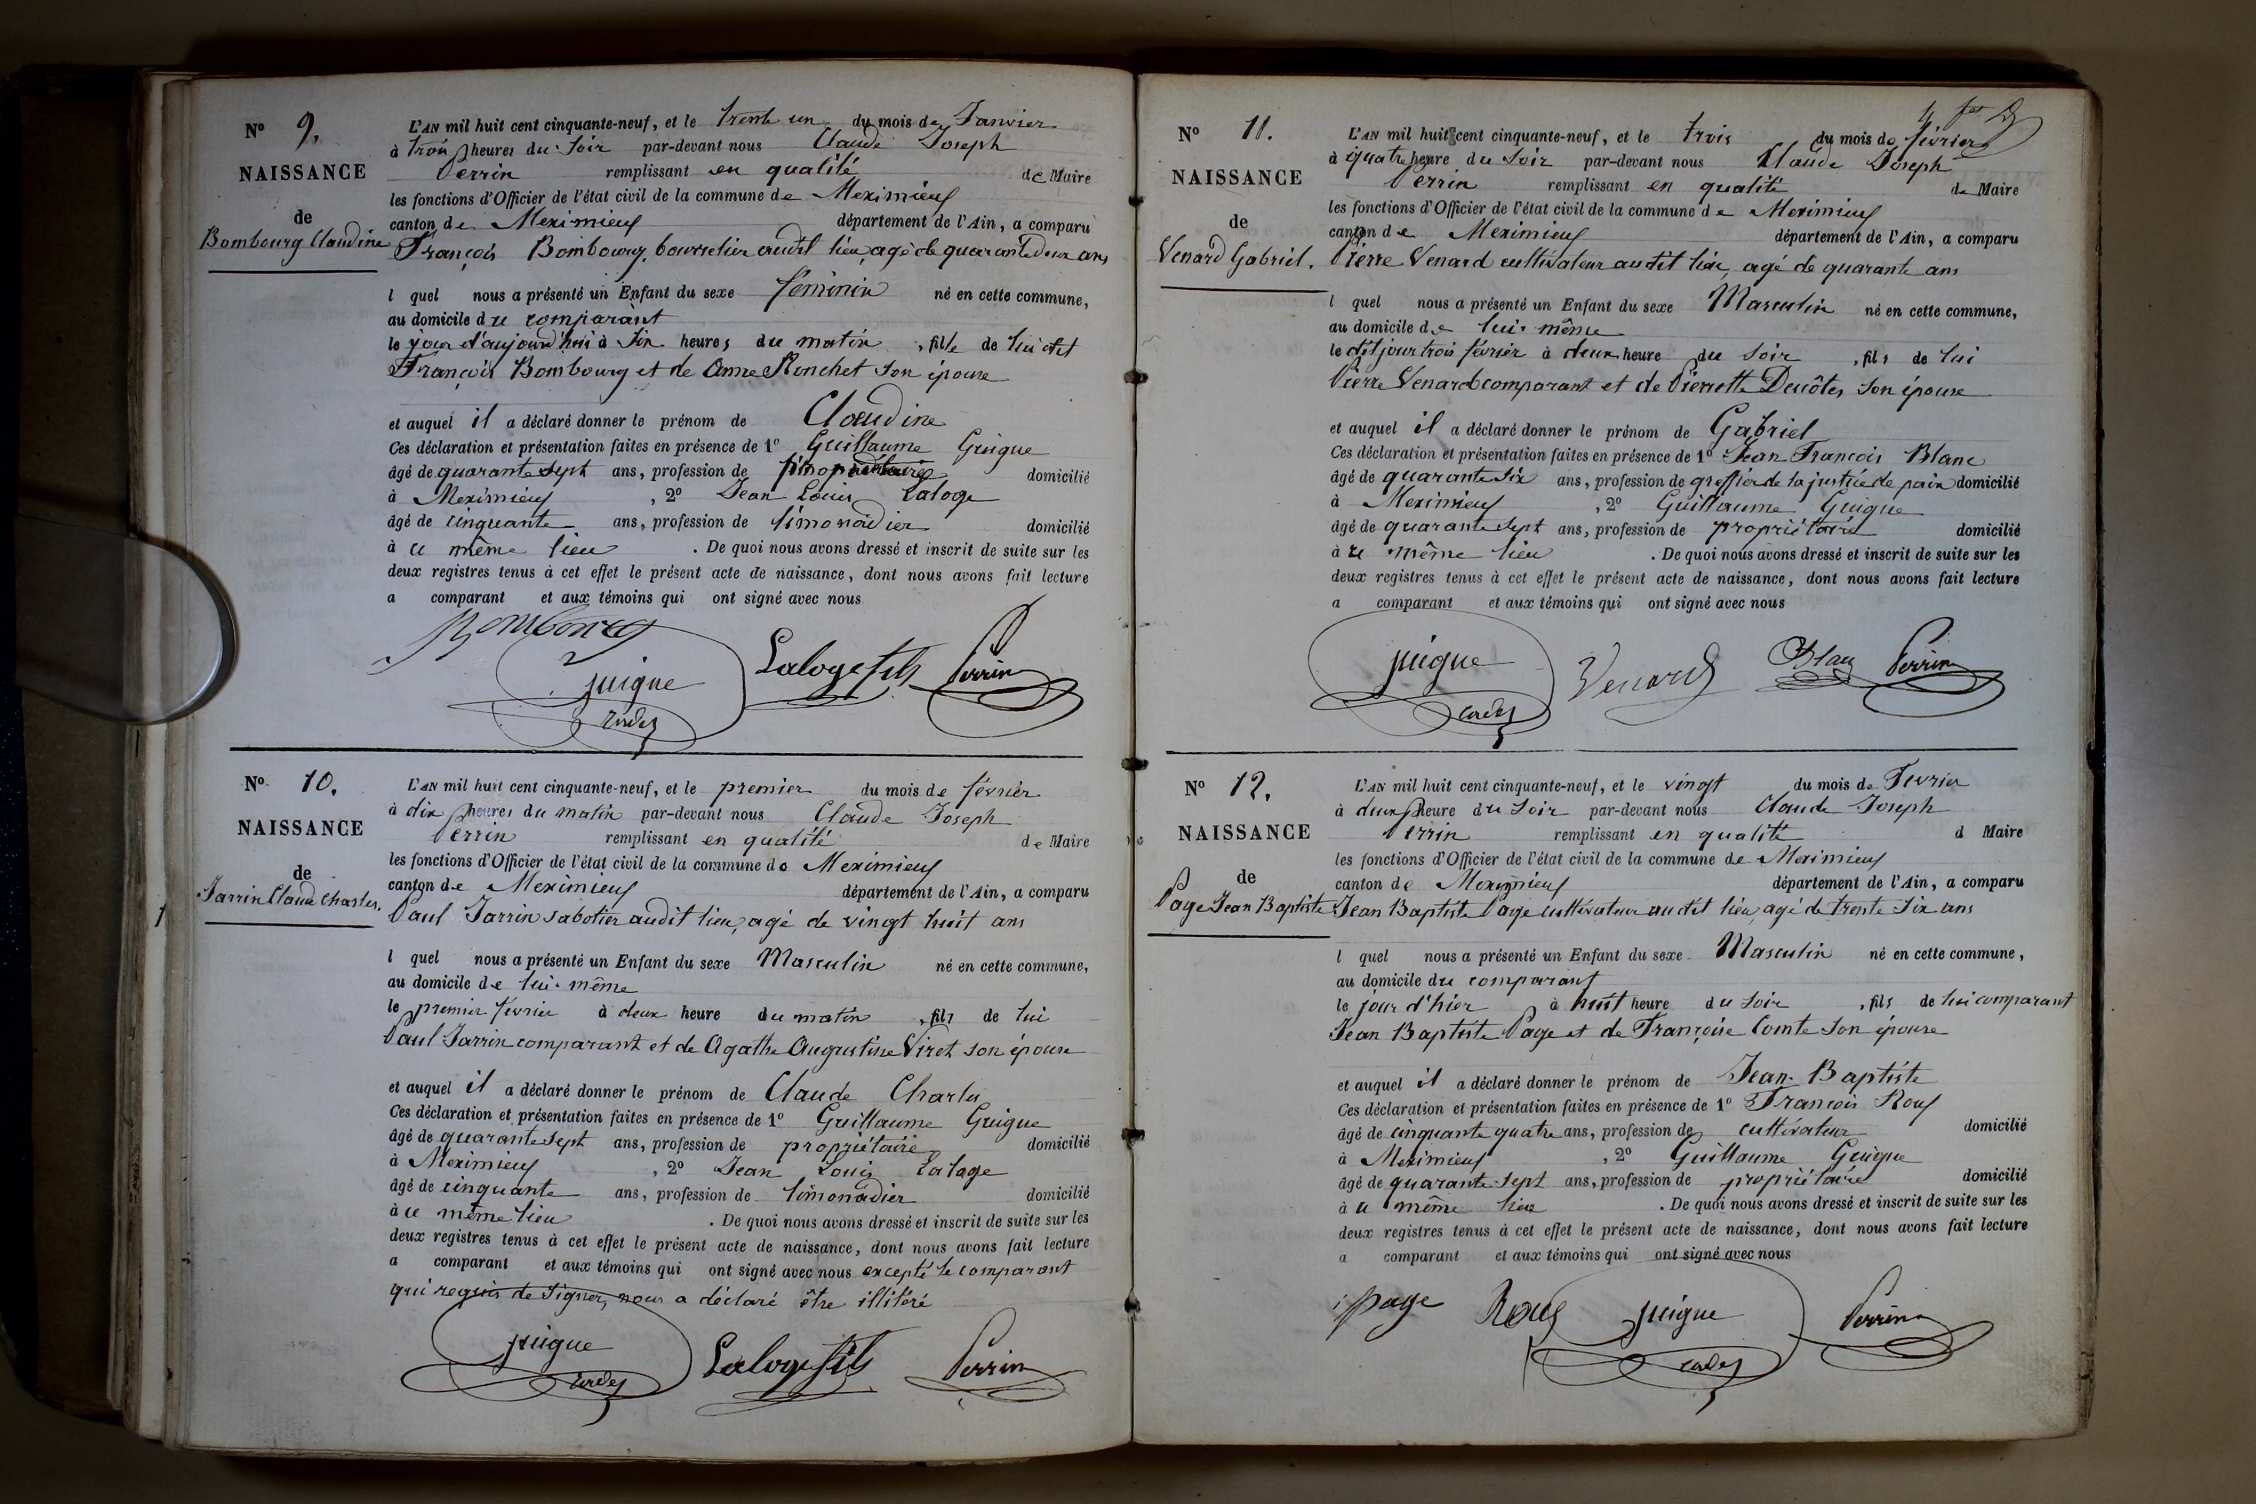 Nº 9.
NAISSANCE
de
Bombourg Claudine
L'AN mil huit cent cinquante-neuf, et le trente un du mois de Janvier
à trois heures du soir par-devant nous Claude Joseph
Perrin remplissant en qualité de Maire
les fonctions d'Officier de l'état civil de la commune de Meximieux
canton de Meximieux département de l'Ain, a comparu
François Bombourg, bourrelier audit lieu, agé de quarante deux ans
l quel nous a présenté un Enfant du sexe féminin né en cette commune,
au domicile du comparant
le jour d'aujourd'hui à six heures du matin, fille de lui dit
François Bombourg et de Anne Ronchet son épouse
et auquel il a déclaré donner le prénom de Claudine
Ces déclaration et présentation faites en présence de 1º Guillaume Guigue
âgé de quarante sept ans, profession de propriétaire domicilié
à Meximieux, 2º Jean Louis Laloge
âgé de cinquante ans, profession de limonadier domicilié
à ce même lieu. De quoi nous avons dressé et inscrit de suite sur les
deux registres tenus à cet effet le présent acte de naissance, dont nous avons fait lecture
a comparant et aux témoins qui ont signé avec nous
Bombourg
guigue Laloge fils Perrin
Nº 10.
NAISSANCE
de
Jarrin Claude Charles.
L'AN mil huit cent cinquante-neuf, et le premier du mois de février
à dix heures du matin par-devant nous Claude Joseph
Perrin remplissant en qualité de Maire
les fonctions d'Officier de l'état civil de la commune de Meximieux
canton de Meximieux département de l'Ain, a comparu
Paul Jarrin sabotier audit lieu, agé de vingt huit ans
l quel nous a présenté un Enfant du sexe Masculin né en cette commune,
au domicile de lui-même
le premier février à deux heure du matin, fils de lui
Paul Jarrin comparant et de Agathe Augustine Viret son épouse
et auquel il a déclaré donner le prénom de Claude Charles
Ces déclaration et présentation faites en présence de 1º Guillaume Guigue
âgé de quarante sept ans, profession de propriétaire domicilié
à Meximieux, 2º Jean Louis Laloge
âgé de cinquante ans, profession de limonadier domicilié
à ce même lieu. De quoi nous avons dressé et inscrit de suite sur les
deux registres tenus à cet effet le présent acte de naissance, dont nous avons fait lecture
a comparant et aux témoins qui ont signé avec nous excepté le comparant
qui requis de signer, nous a déclaré être illitéré
guigue Laloge fils Perrin
Nº 11.
NAISSANCE
de
Venard Gabriel.
L'AN mil huit cent cinquante-neuf, et le trois du mois de février
à quatre heure du soir par-devant nous Claude Joseph
Perrin remplissant en qualité de Maire
les fonctions d'Officier de l'état civil de la commune de Meximieux
canton de Meximieux département de l'Ain, a comparu
Pierre Venard cultivateur audit lieu, agé de quarante ans
l quel nous a présenté un Enfant du sexe Masculin né en cette commune,
au domicile de lui-même
le dit jour trois février à deux heure du soir, fils de lui
Pierre Venard comparant et de Pierrette Devôtes son épouse
et auquel il a déclaré donner le prénom de Gabriel
Ces déclaration et présentation faites en présence de 1º Jean François Blanc
âgé de quarante six ans, profession de greffier de la justice de paix domicilié
à Meximieux, 2º Guillaume Guigue
âgé de quarante sept ans, profession de propriétaire domicilié
à ce même lieu. De quoi nous avons dressé et inscrit de suite sur les
deux registres tenus à cet effet le présent acte de naissance, dont nous avons fait lecture
a comparant et aux témoins qui ont signé avec nous
guigue Venard Blanc Perrin
Nº 12.
NAISSANCE
de
Page Jean Baptiste
L'AN mil huit cent cinquante-neuf, et le vingt du mois de Fevrier
à deux heure du soir par-devant nous Claude Joseph
Perrin remplissant en qualité d Maire
les fonctions d'Officier de l'état civil de la commune de Meximieux
canton de Meximieux département de l'Ain, a comparu
Jean Baptiste Page cultivateur audit lieu, agé de trente six ans
l quel nous a présenté un Enfant du sexe Masculin né en cette commune,
au domicile du comparant
le jour d'hier à huit heure du soir, fils de lui comparant
Jean Baptiste Page et de Françoise Comte son épouse
et auquel il a déclaré donner le prénom de Jean-Baptiste
Ces déclaration et présentation faites en présence de 1º François Roux
âgé de cinquante quatre ans, profession de cultivateur domicilié
à Meximieux, 2º Guillaume Guigue
âgé de quarante sept ans, profession de propriétaire domicilié
à ce même lieu. De quoi nous avons dressé et inscrit de suite sur les
deux registres tenus à cet effet le présent acte de naissance, dont nous avons fait lecture
a comparant et aux témoins qui ont signé avec nous
page Roux guigue Perrin